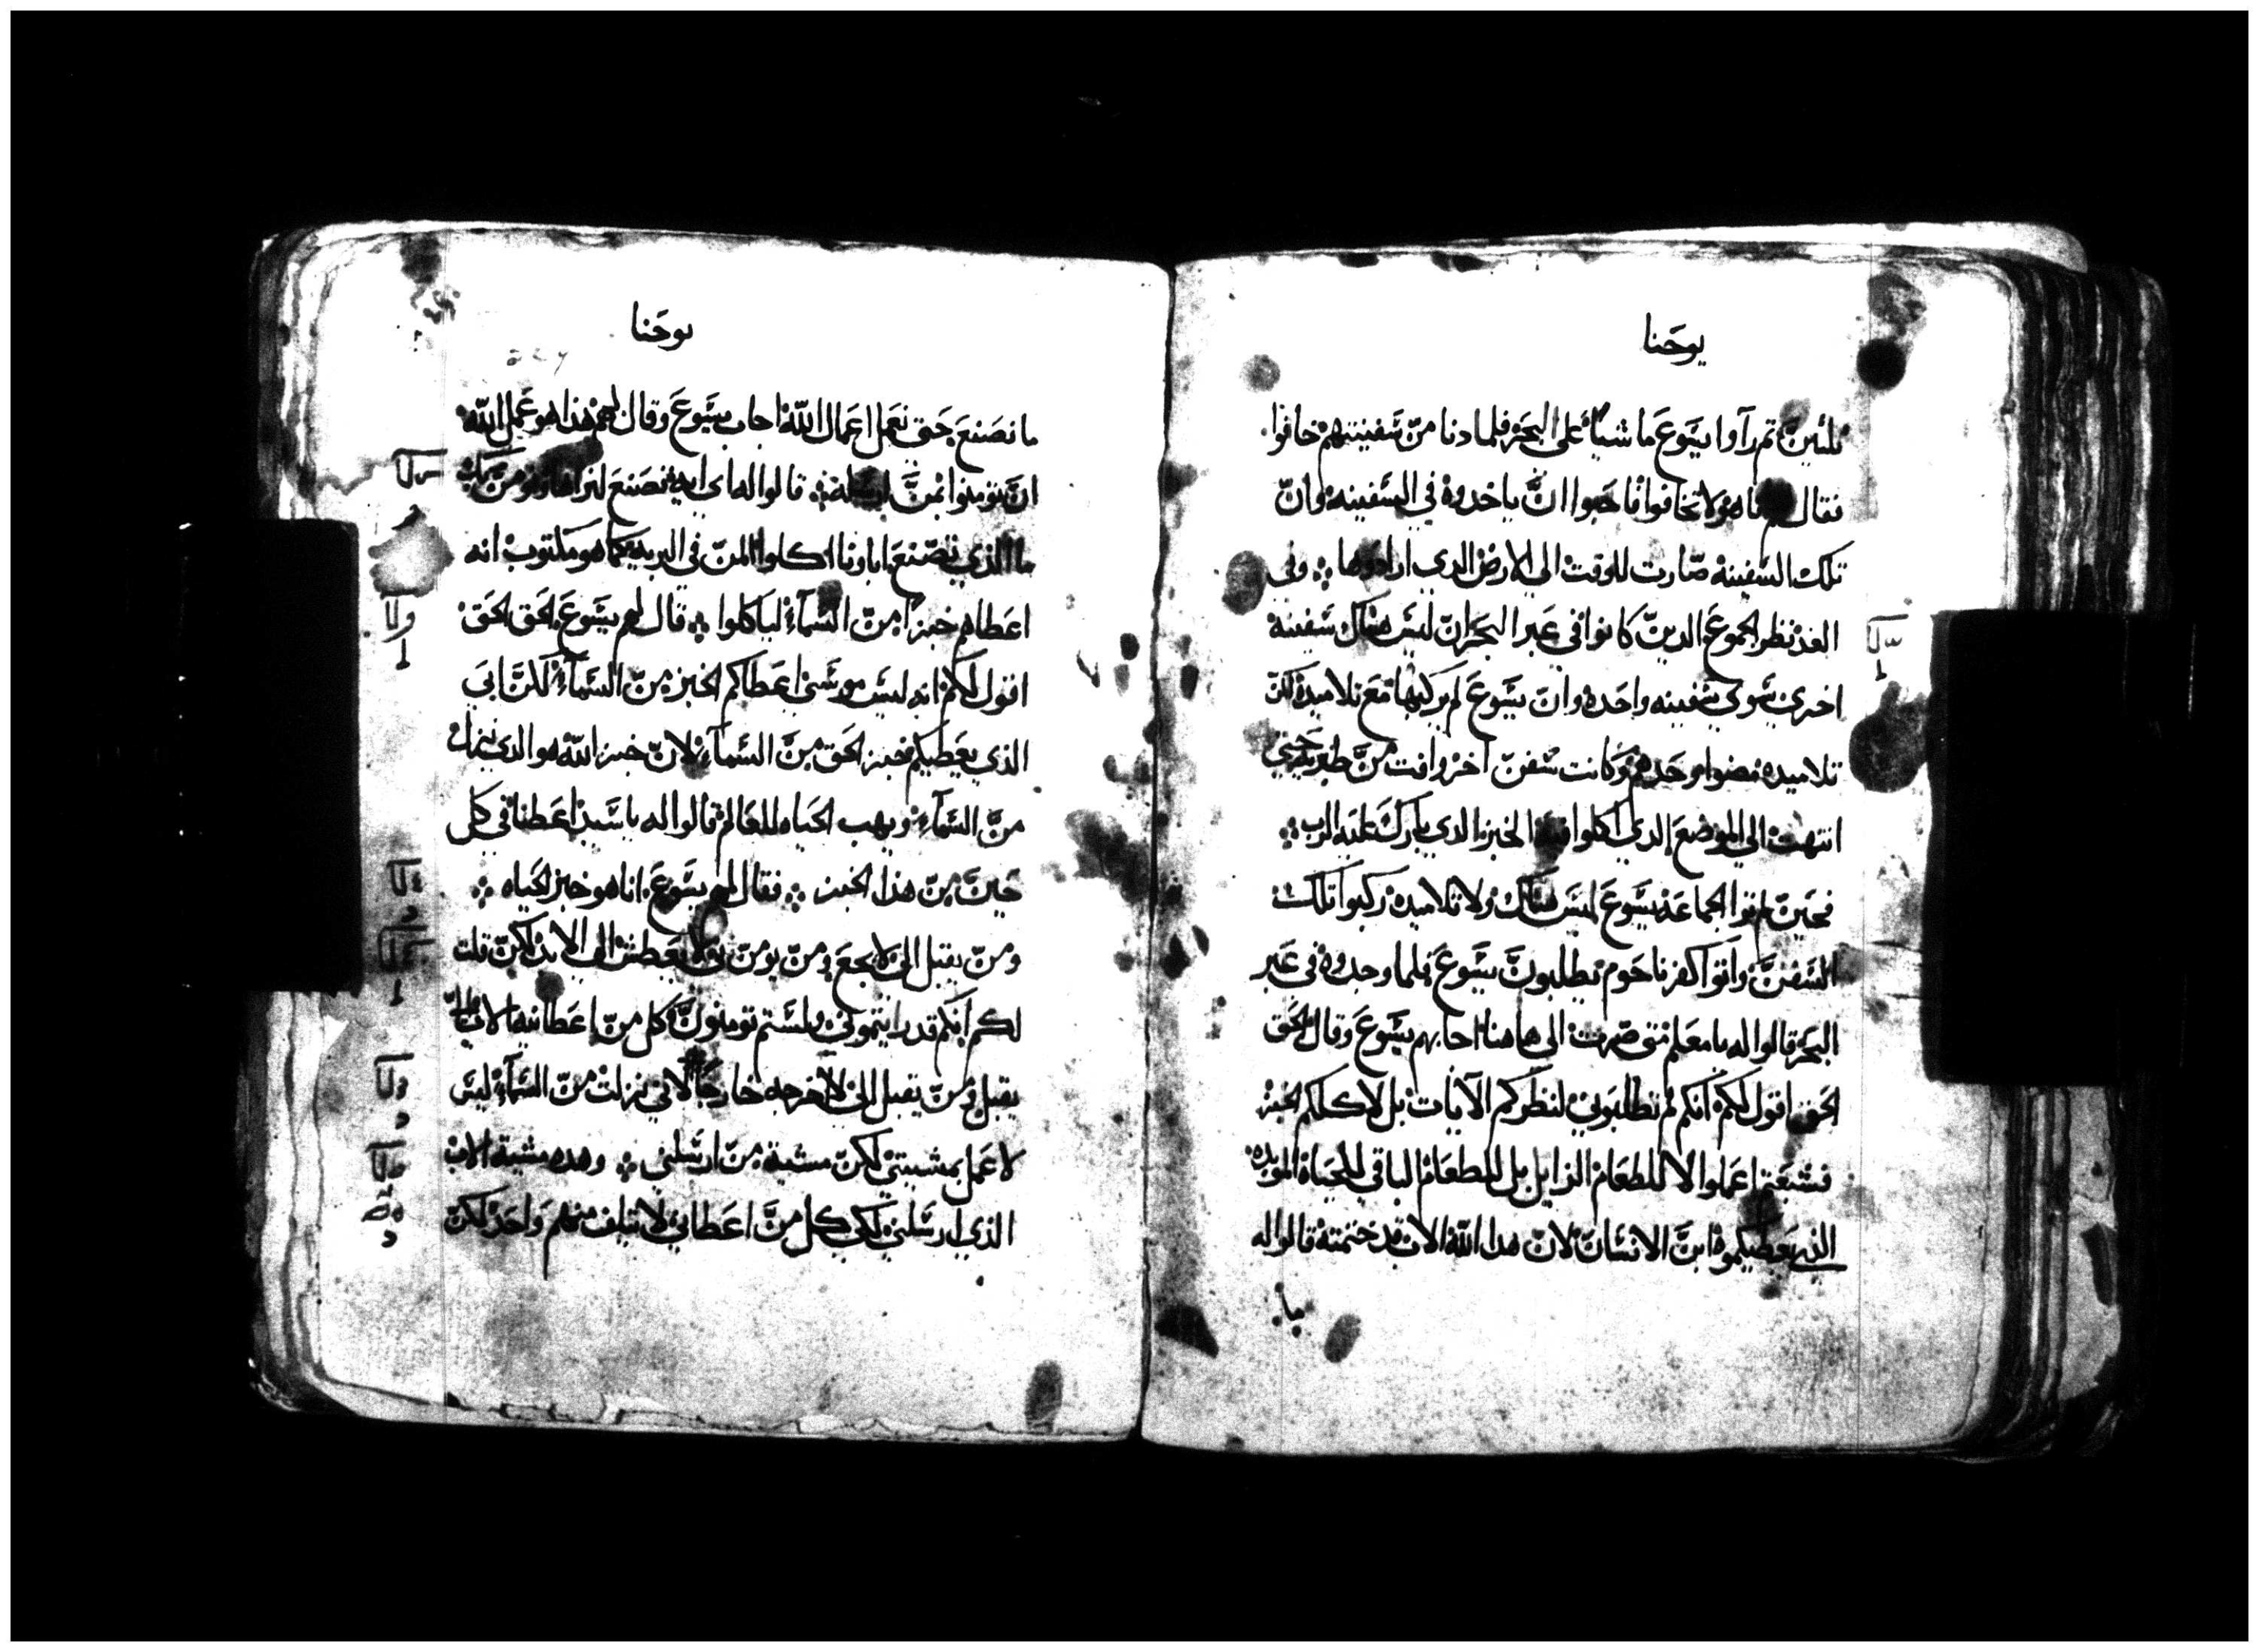 يوحنا
ثلثين ثم رآوا يسوع ماشياً على البحر فلما دنا من سفينتهم خافوا
فقال انا هو لا تخافوا فاحبوا ان ياخدوه في السفينه وان
تلك السفينه صارت للوقت الى الارض الدي ارادوها وفي
الغد نظر الجموع الدين كانوا في عبر البحر ان ليس هناك سفينة
اخرى سوى سفينه واحده وان يسوع لم يركبها مع تلاميده لكن
تلاميده مضوا وحدهم وكانت سفن اخر وافت من طبريه حتى
انتهت الى الموضع الدي اكلوا فيه الخبز الدي بارك عليه الرب
فحين لم تر الجماعة يسوع ليس هناك ولا تلاميده ركبوا تلك
السفن واتوا كفرناحوم يطلبون يسوع فلما وجدوه في عبر
البحر قالوا له يا معلم متى صرت الى هاهنا اجابهم يسوع وقال الحق
الحق اقول لكم انكم لم تطلبوني لنظركم الآيات بل لاكلكم الخبز
فشبعتم اعملوا لا للطعام الزايل بل للطعام الباقي للحياة المويده
الذي يعطيكموه ابن الانسان لان هدا الله الاب قد ختمته قالوا له
ما
يوحنا
ما نصنع حتى نعمل اعمال الله اجاب يسوع وقال لهم هذا هو عمل الله
ان تومنوا بمن ارسله قالوا له اى ايه تصنع لنراها ونومن بك
ما الذي تصنع اباونا اكلوا المن في البريه كما هو مكتوب انه
اعطاهم خبزا من السمآء لياكلوا قال لهم يسوع الحق الحق
اقول لكم انه ليس موسى اعطاكم الخبز من السمآء لكن ابي
الذي يعطيكم خبز الحق من السمآء لان خبز الله هو الدي ينزل
من السمآء ويهب الحياه للعالم قالوا له يا سيد اعطنا في كل
حين من هذا الخبز فقال لهم يسوع انا هو خبز الحياه
ومن يقبل الي لا يجع ومن يومن بي لا يعطش الى الابد لكن قلت
لكم انكم قد رايتموني ولستم تومنون كل من اعطانيه الاب الي
يقبل ومن يقبل الي لا اخرجه خارجاً لاني نزلت من السمآء ليس
لاعمل بمشيتي لكن مشية من ارسلني وهده مشية الاب
الذي ارسلني لكي كل من اعطاني لا يتلف منهم واحد لكن